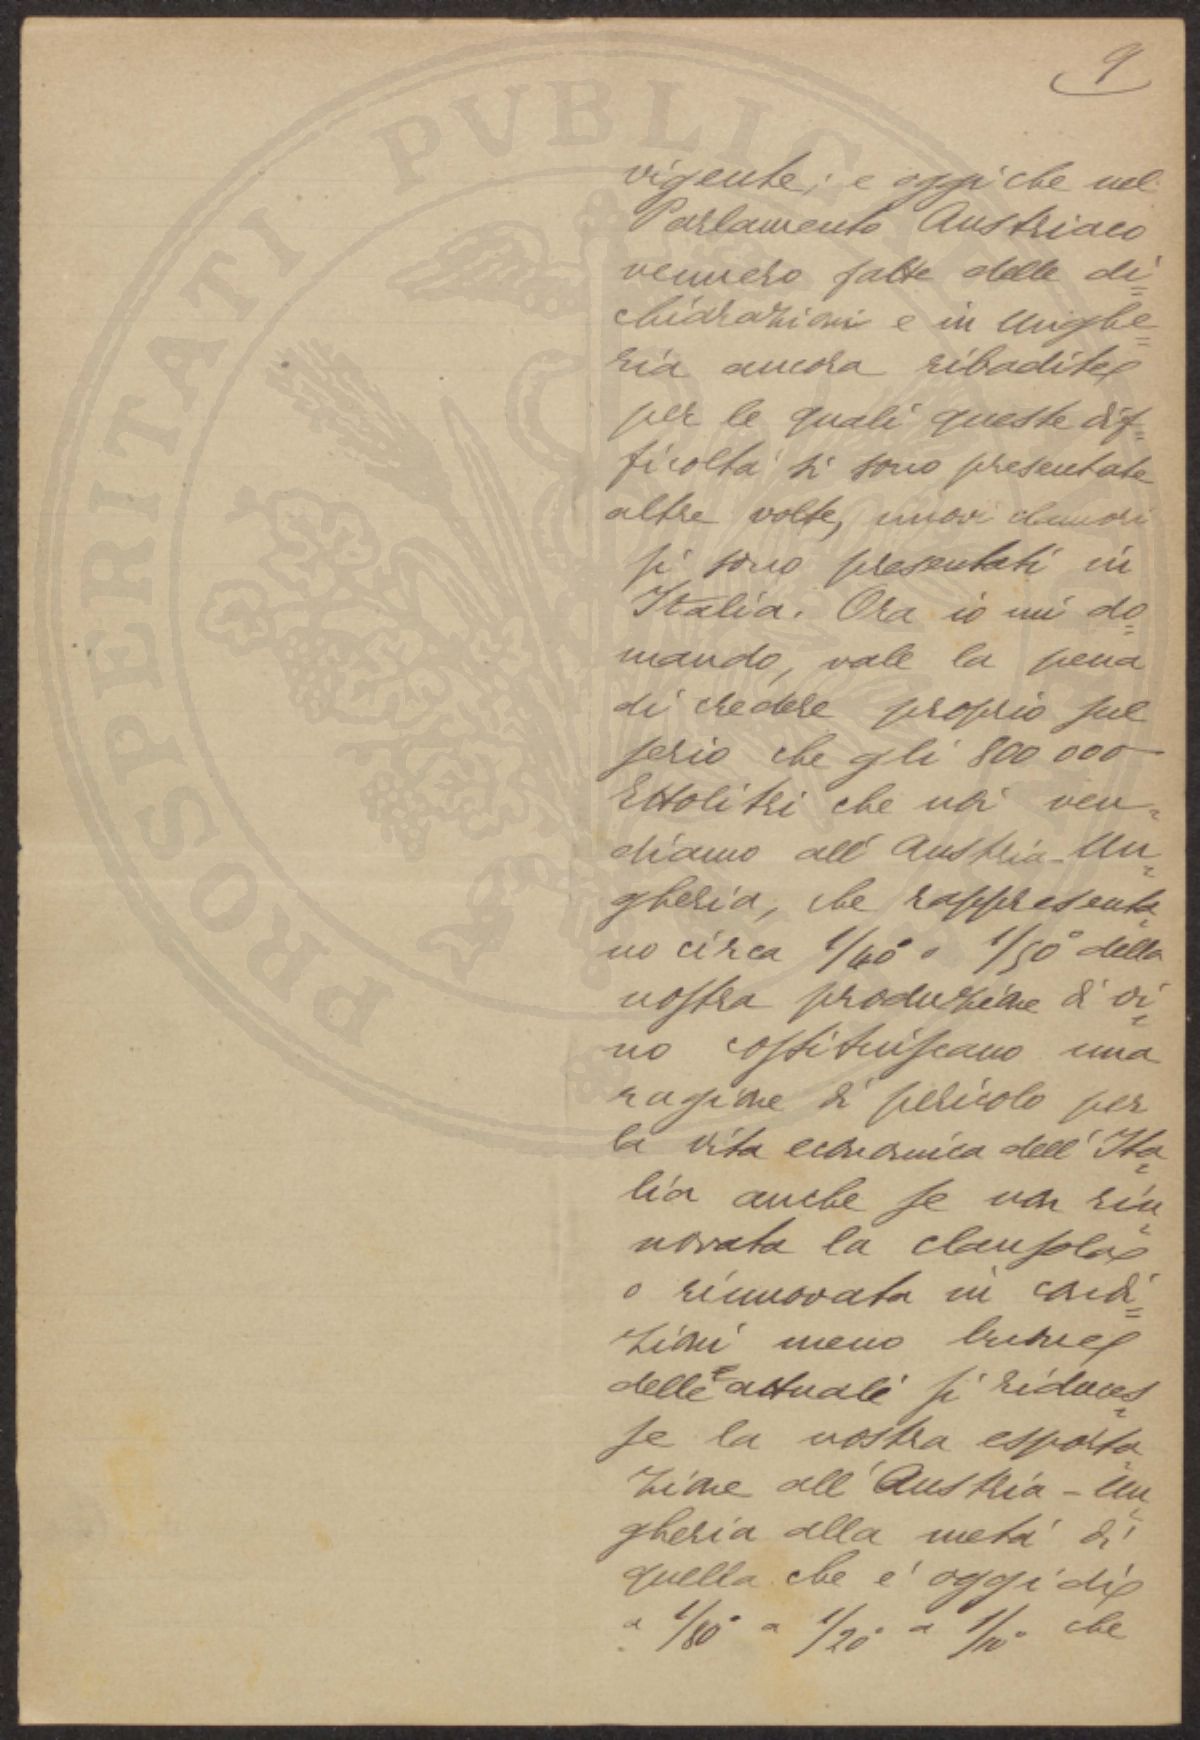 9
PROSPERITATI PVBLIC
vigente; e oggi che nel
Parlamento Austriaco
vennero fatte delle di=
chiarazioni e in Unghe=
ria ancora ribadite
per le quali queste dif=
ficoltà si sono presentate
altre volte, nuovi clamori
si sono presentati in
Italia. Ora io mi do=
mando, vale la pena
di credere proprio sul
serio che gli 800 000
Ettolitri che noi ven=
diamo all'Austria-Un=
gheria, che rappresenta=
no circa 1/40° o 1/50° della
nostra produzione di vi=
no costituiscano una
ragione di pericolo per
la vita economica dell'Ita=
lia anche se non rin=
novata la clausola
o rinnovata in condi=
zioni meno buone
delle attuali si riduces=
se la nostra esporta=
zione all'Austria-Un=
gheria alla metà di
quella che e' oggi dì
a 1/80° a 1/20° a che